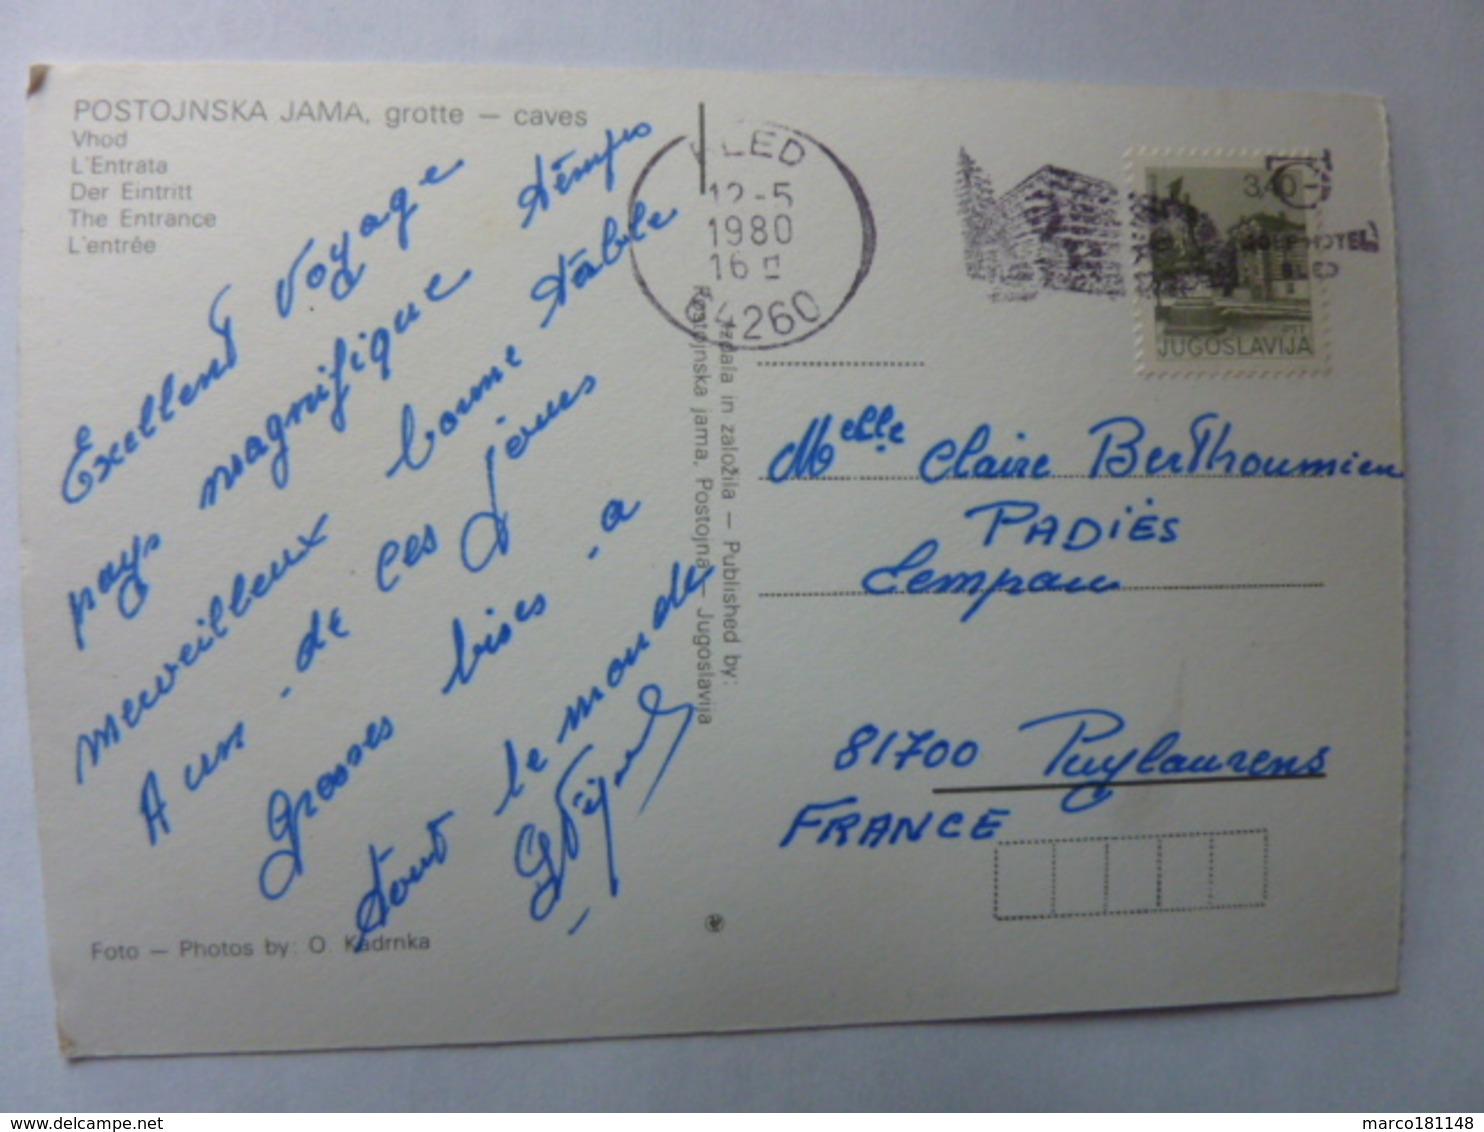 POSTOJNSKA JAMA, grotte — caves
Vhod
L'Entrata
Der Eintritt
The Entrance
L'entrée
Excellent Voyage
pays magnifique temps
merveilleux bonne table
A un de ces jours
grosses bises a
tout le monde
Foto — Photos by: O. Kadrnka
BLED
12-5
1980
16
64260
Izdala in založila — Published by:
Postojnska jama, Postojna — Jugoslavija
3,40
GOLF HOTEL
BLED
PTT
JUGOSLAVIJA
Melle Claire Berthoumieu
PADIÈS
Lempau
81700 Puylaurens
FRANCE
marco181148